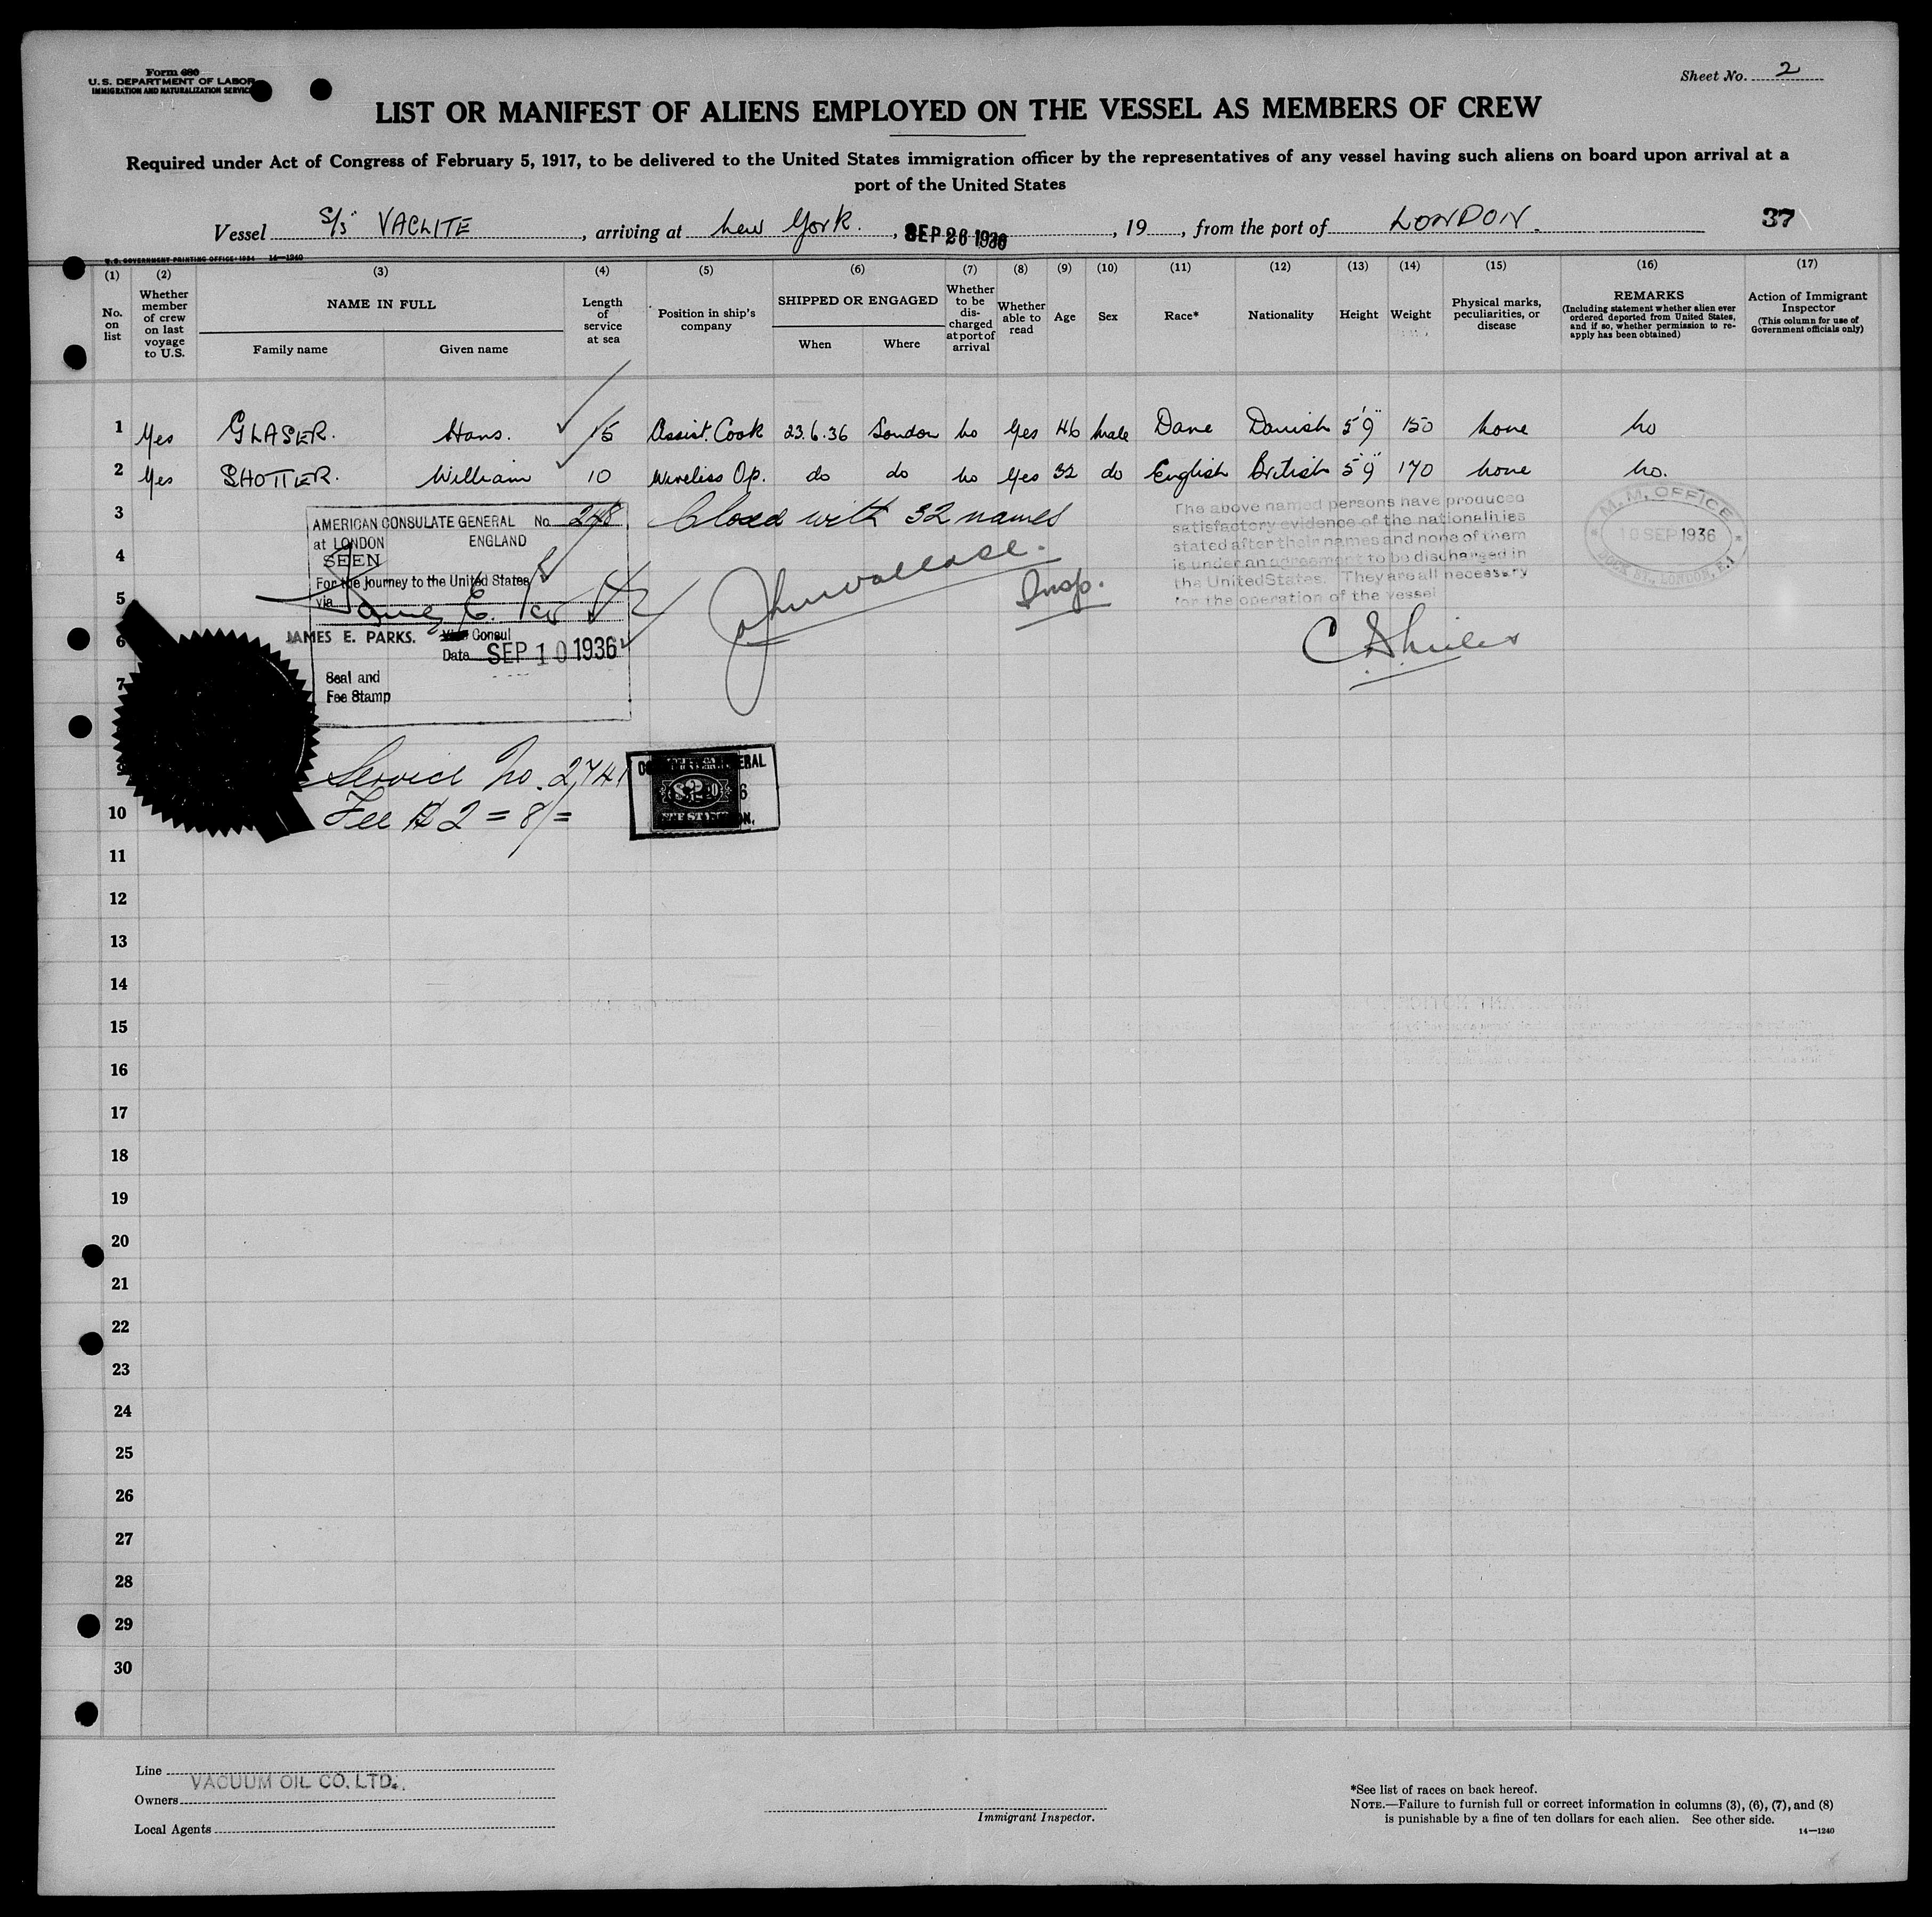 Form 680
U.S. DEPARTMENT OF LABOR
IMMIGRATION AND NATURALIZATION SERVICE
Sheet No. 2
LIST OR MANIFEST OF ALIENS EMPLOYED ON THE VESSEL AS MEMBERS OF CREW
Required under Act of Congress of February 5, 1917, to be delivered to the United States immigration officer by the representatives of any vessel having such aliens on board upon arrival at a
port of the United States
Vessel S/S VACLITE, arriving at New York., SEP 26 1936, 19, from the port of LONDON. 37
U.S. GOVERNMENT PRINTING OFFICE: 1934 14—1240
(1) (2) (3) (4) (5) (6) (7) (8) (9) (10) (11) (12) (13) (14) (15) (16) (17)
No. on list
Whether member of crew on last voyage to U.S.
NAME IN FULL
Family name Given name
Length of service at sea
Position in ship's company
SHIPPED OR ENGAGED
When Where
Whether to be discharged at port of arrival
Whether able to read
Age
Sex
Race*
Nationality
Height
Weight
Physical marks, peculiarities, or disease
REMARKS
(Including statement whether alien ever ordered deported from United States, and if so, whether permission to reapply has been obtained)
Action of Immigrant Inspector
(This column for use of Government officials only)
1 Yes GLASER. Hans. 15 Assist. Cook 23.6.36 London No Yes 46 Male Dane Danish 5'9" 150 None No
2 Yes SHOTTER. William 10 Wireless Op. do do No Yes 32 do English British 5'9" 170 None No.
3 Closed with 32 names
AMERICAN CONSULATE GENERAL No. 248
at LONDON ENGLAND
SEEN
For the journey to the United States
via
JAMES E. PARKS. Vice Consul
Date SEP 10 1936
Seal and
Fee Stamp
John Wallace.
Insp.
The above named persons have produced
satisfactory evidence of the nationalities
stated after their names and none of them
is under an agreement to be discharged in
the United States. They are all necessary
for the operation of the vessel
M.M. OFFICE
10 SEP 1936
DOCK ST., LONDON, E.1
4
5
6
7
9
Service No. 2741
Fee $2 = 8/=
10
11
12
13
14
15
16
17
18
19
20
21
22
23
24
25
26
27
28
29
30
Line
VACUUM OIL CO. LTD.
Owners
Local Agents
Immigrant Inspector.
*See list of races on back hereof.
NOTE.—Failure to furnish full or correct information in columns (3), (6), (7), and (8)
is punishable by a fine of ten dollars for each alien. See other side.
14—1240